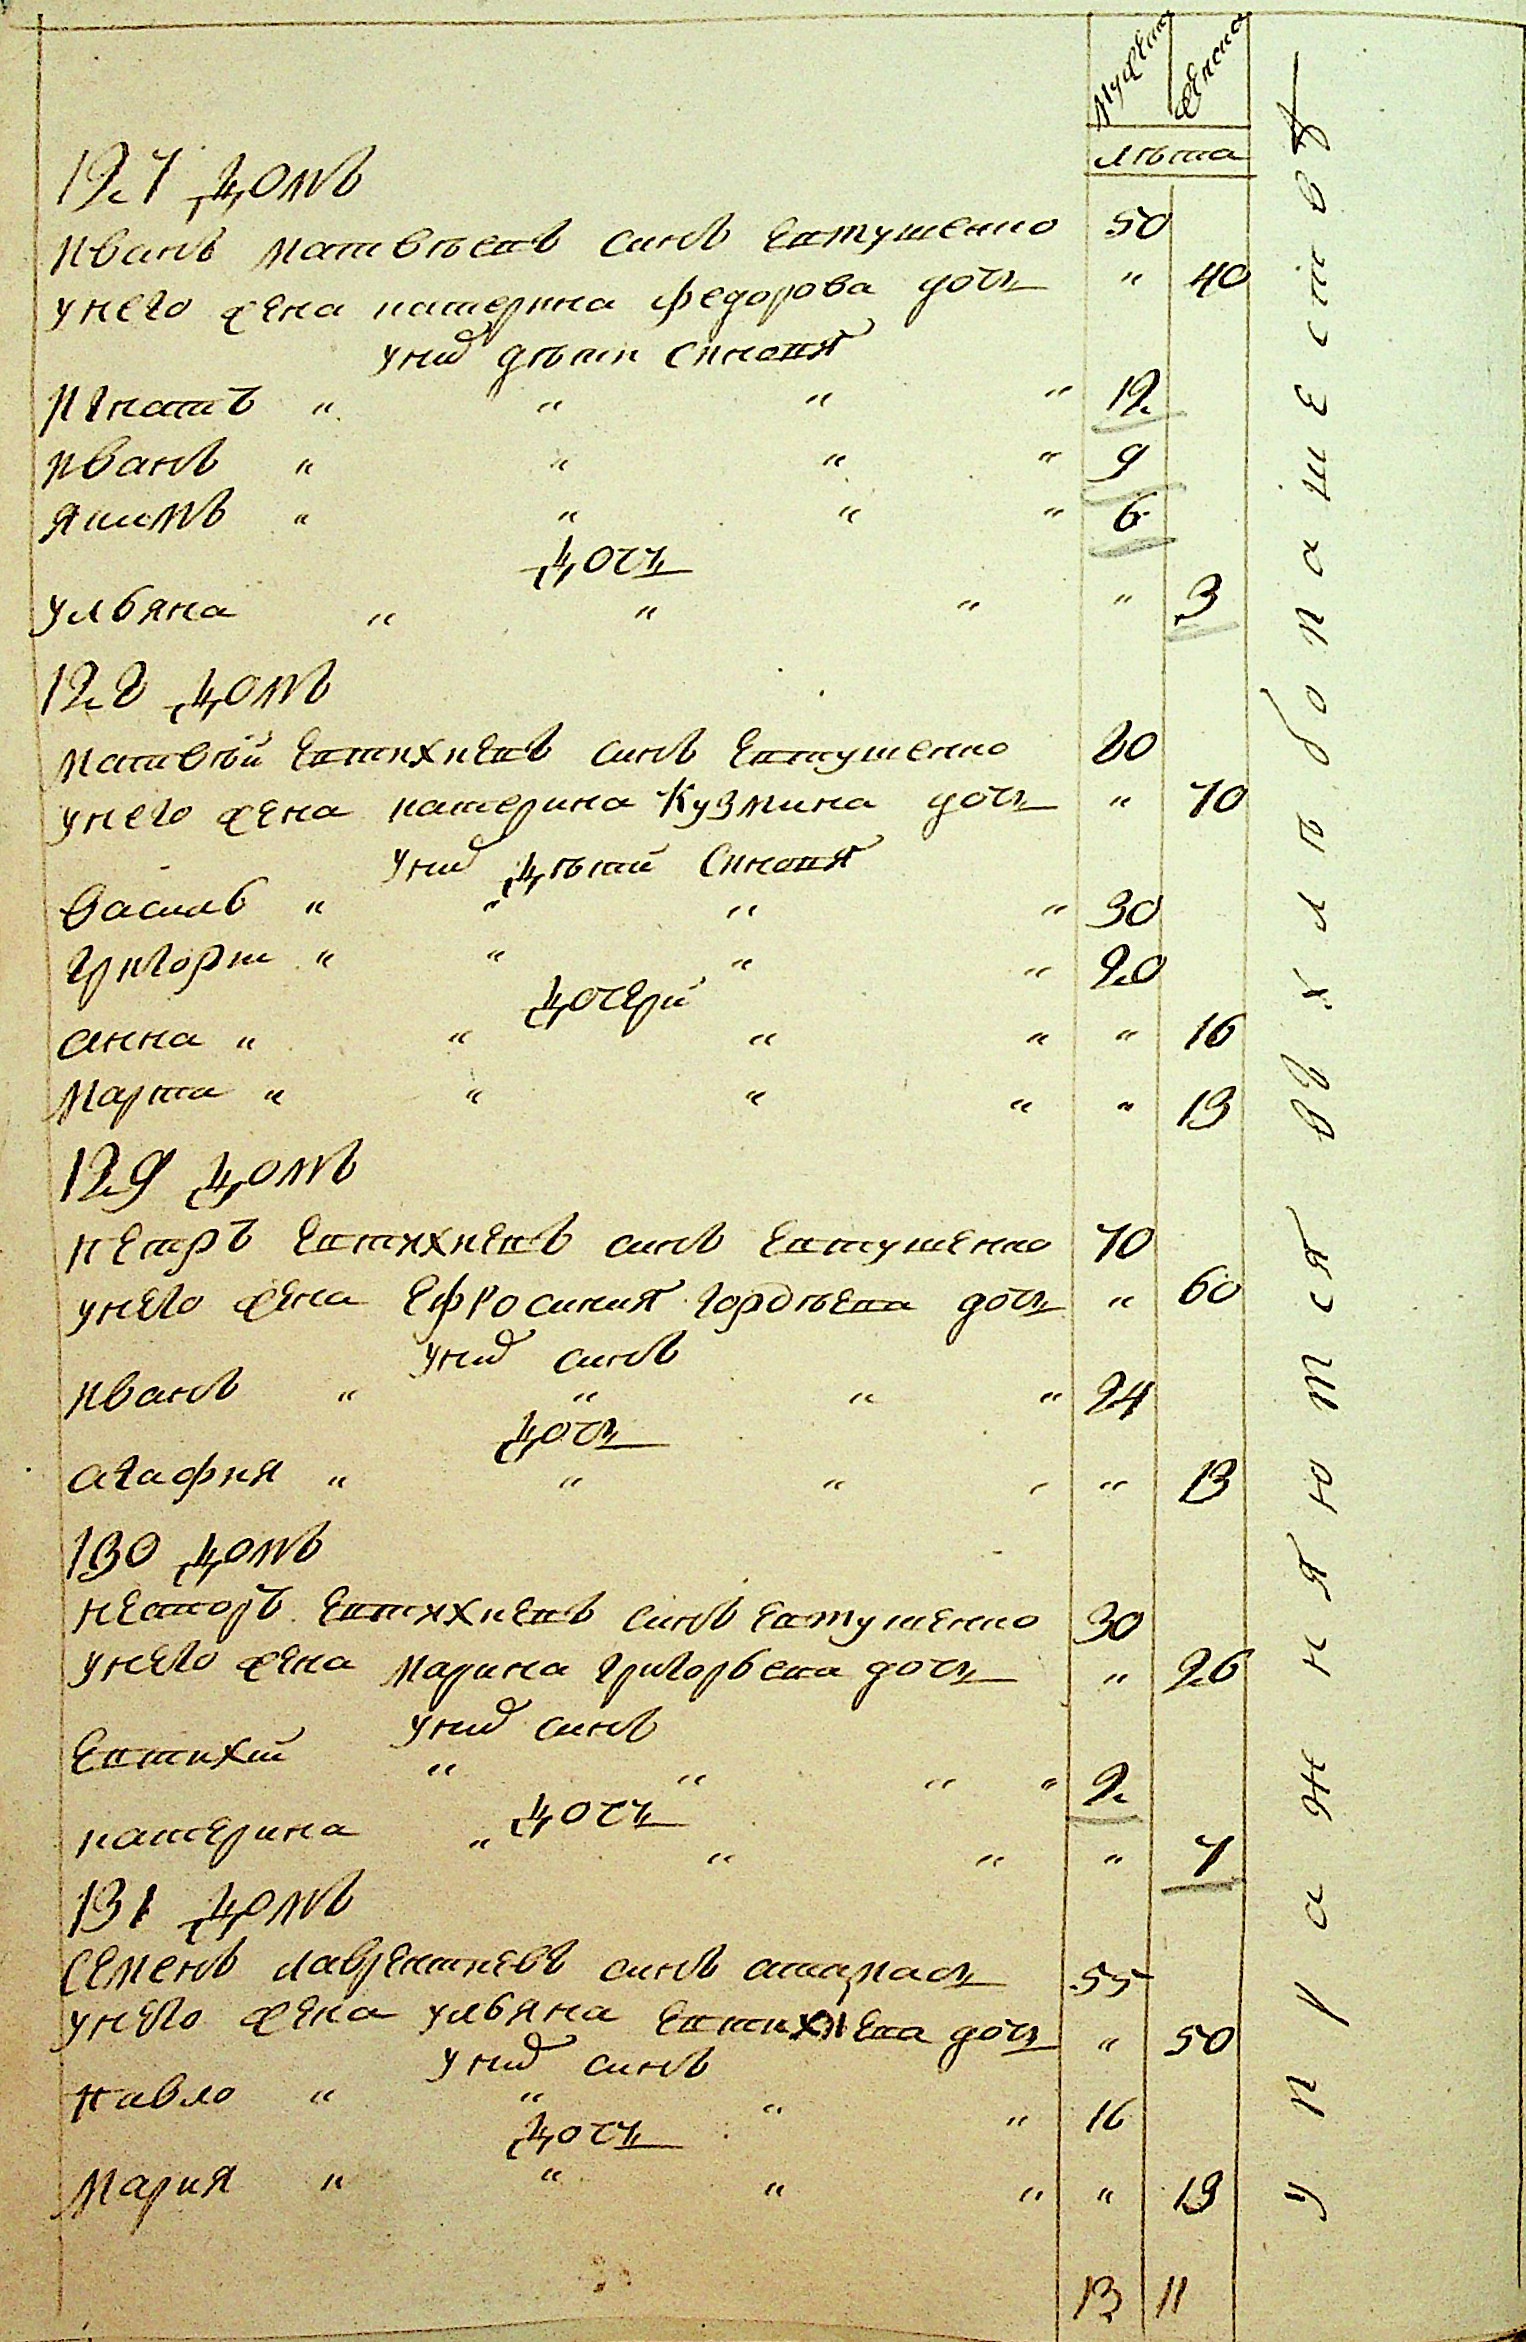 Мужеска Женска
лѣта
127 домъ
иванъ матвѣевъ синъ евтушенко 50
унего жена катерина федорова дочъ " 40
унид дѣти синовя
игнатъ " " " " 12
иванъ " " " " 9
якимъ " " " " 6
дочъ
уляна " " " " 3
128 домъ
матвѣй евтихиевъ синъ евтушенко 80
унего жена катерина кузмина дочъ " 70
унид дѣтй синовя
василь " " " " 30
григорий " " " " 20
дочерй
анна " " " " " 16
марта " " " " " 13
129 домъ
петръ евтихиевъ синъ евтушенко 70
унего жена ефросиния гордѣева дочъ " 60
унид синъ
иванъ " " " " 24
дочъ
агафия " " " " " 13
130 домъ
несторъ евтихиевъ синъ евтушенко 30
унего жена марина григорьева дочъ " 26
унид синъ
евтихий " " " " 2
дочъ
катерина " " " " 7
131 домъ
семенъ лаврентиевъ синъ 55
унего жена уляна евтихиева дочъ " 50
унид синъ
павло " " " " 16
дочъ
мария " " " " " 13
13 11
упражняются въ хлѣбопашествѣ